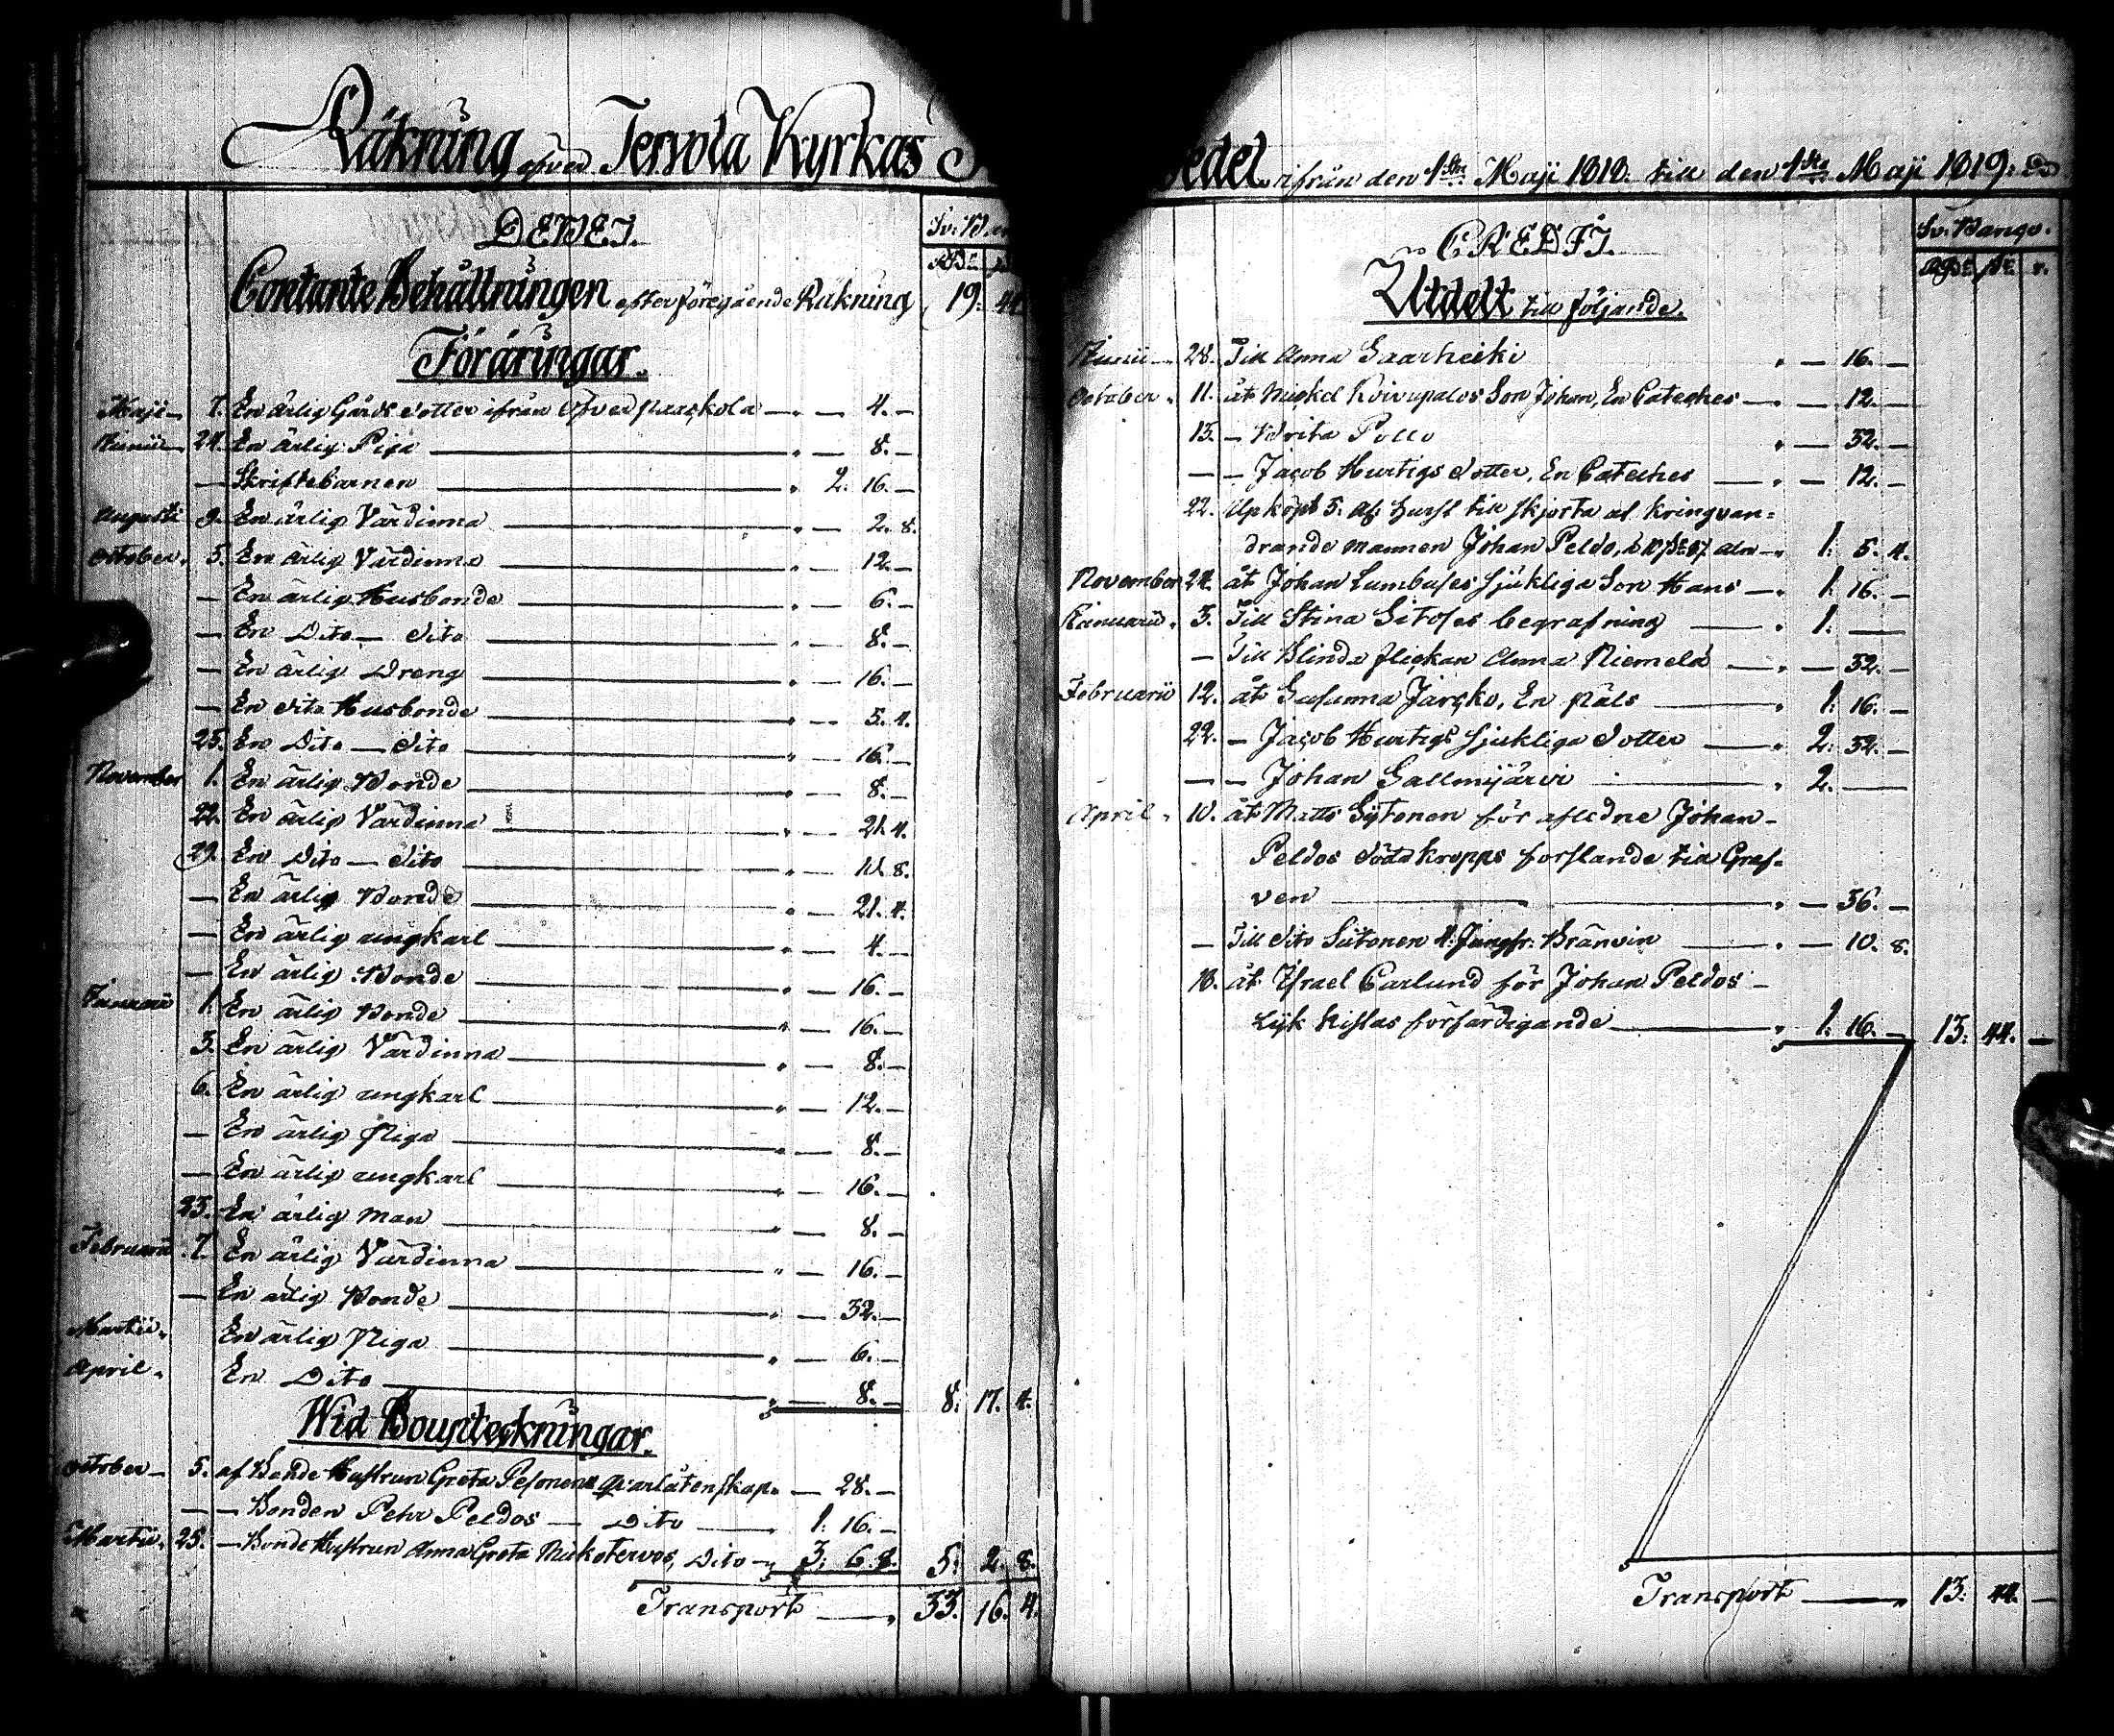 Räkning öfver Tervola Kyrkas
DEBET.
Sv. B
Contante Behållningen efter föregående Räkning 19. 44
Föräringar.
Maji 7. En ärlig Gårds dotter ifrån Öfver Paaskola — 4. —
Junii 24. En ärlig Piga — 8. —
— Skriftebarnen 2. 16. —
Augusti 9. En ärlig Värdinna — 2. 8.
October. 5. En ärlig Värdinna — 12. —
— En ärlig Husbonde — 6. —
— En Dito — Dito — 8. —
— En ärlig Dreng — 16. —
— En dito Husbonde — 5. 4.
25. En Dito — Dito — 16. —
November 1. En ärlig Bonde — 8. —
22. En ärlig Värdinna — 21. 4.
29. En Dito — Dito — 10. 8.
— En ärlig Bonde — 21. 4.
— En ärlig ungkarl — 4. —
— En ärlig Bonde — 16. —
Januarii 1. En ärlig Bonde — 16. —
3. En ärlig Värdinna — 8. —
6. En ärlig ungkarl — 12. —
— En ärlig Piga — 8. —
— En ärlig ungkarl — 16. —
23. En ärlig Man — 8. —
Februarii 7. En ärlig Värdinna — 16. —
— En ärlig Bonde — 32. —
Martii. En ärlig Piga — 6. —
April. En Dito — 8. — 8. 17. 4.
Wid Boupteckningar.
October 5. af Bonde Hustrun Greta Pesonens qvarlåtenskap. — 28. —
— — Bonden Pehr Peldos — Dito 1. 16. —
Martii. 25. — Bonde Hustrun Anna Greta Dito 3. 6. 8. 5. 2. 8.
Transport 33. 16. 4.
edel ifrån den 1sta Maji 1818. till den 1sta Maji 1819.
CREDIT.
Sv. Banqo.
Rdr. ß. r.
Utdelt till följande.
Junii 28. Till Anna Saarheiki — 16. —
October. 11. åt Mickel Koivupalos Son Johan, En Cateches — 12. —
13. — Brita Pello — 32. —
— — Jacob Hurtigs Dotter, En Cateches — 12. —
22. Upköpt 5. al. till skjorta af kringvan-
drande mannen Johan Peldo, aln 1. 5. 4.
November 24. åt Johan Lumbuses sjukliga Son Hans 1. 16. —
Januarii. 3. Till Stina Sitoses begrafning 1. —
— Till Blinda flickan Anna Niemelä — 32. —
Februarii 12. åt Susanna Järcko, En Päls 1. 16. —
22. — Jacob Hurtigs sjukliga Dotter 2. 32. —
— — Johan Sallmijärvi 2. —
April. 10. åt Matts Sytonen för aflidne Johan
Peldos döda kropps forslande till Graf-
ven — 36. —
— Till Dito Siitonen Bränvin — 10. 8.
18. åt Israel Carlund för Johan Peldos
Lijk kistas förfärdigande 1. 16. — 13. 44. —
Transport 13. 44. —